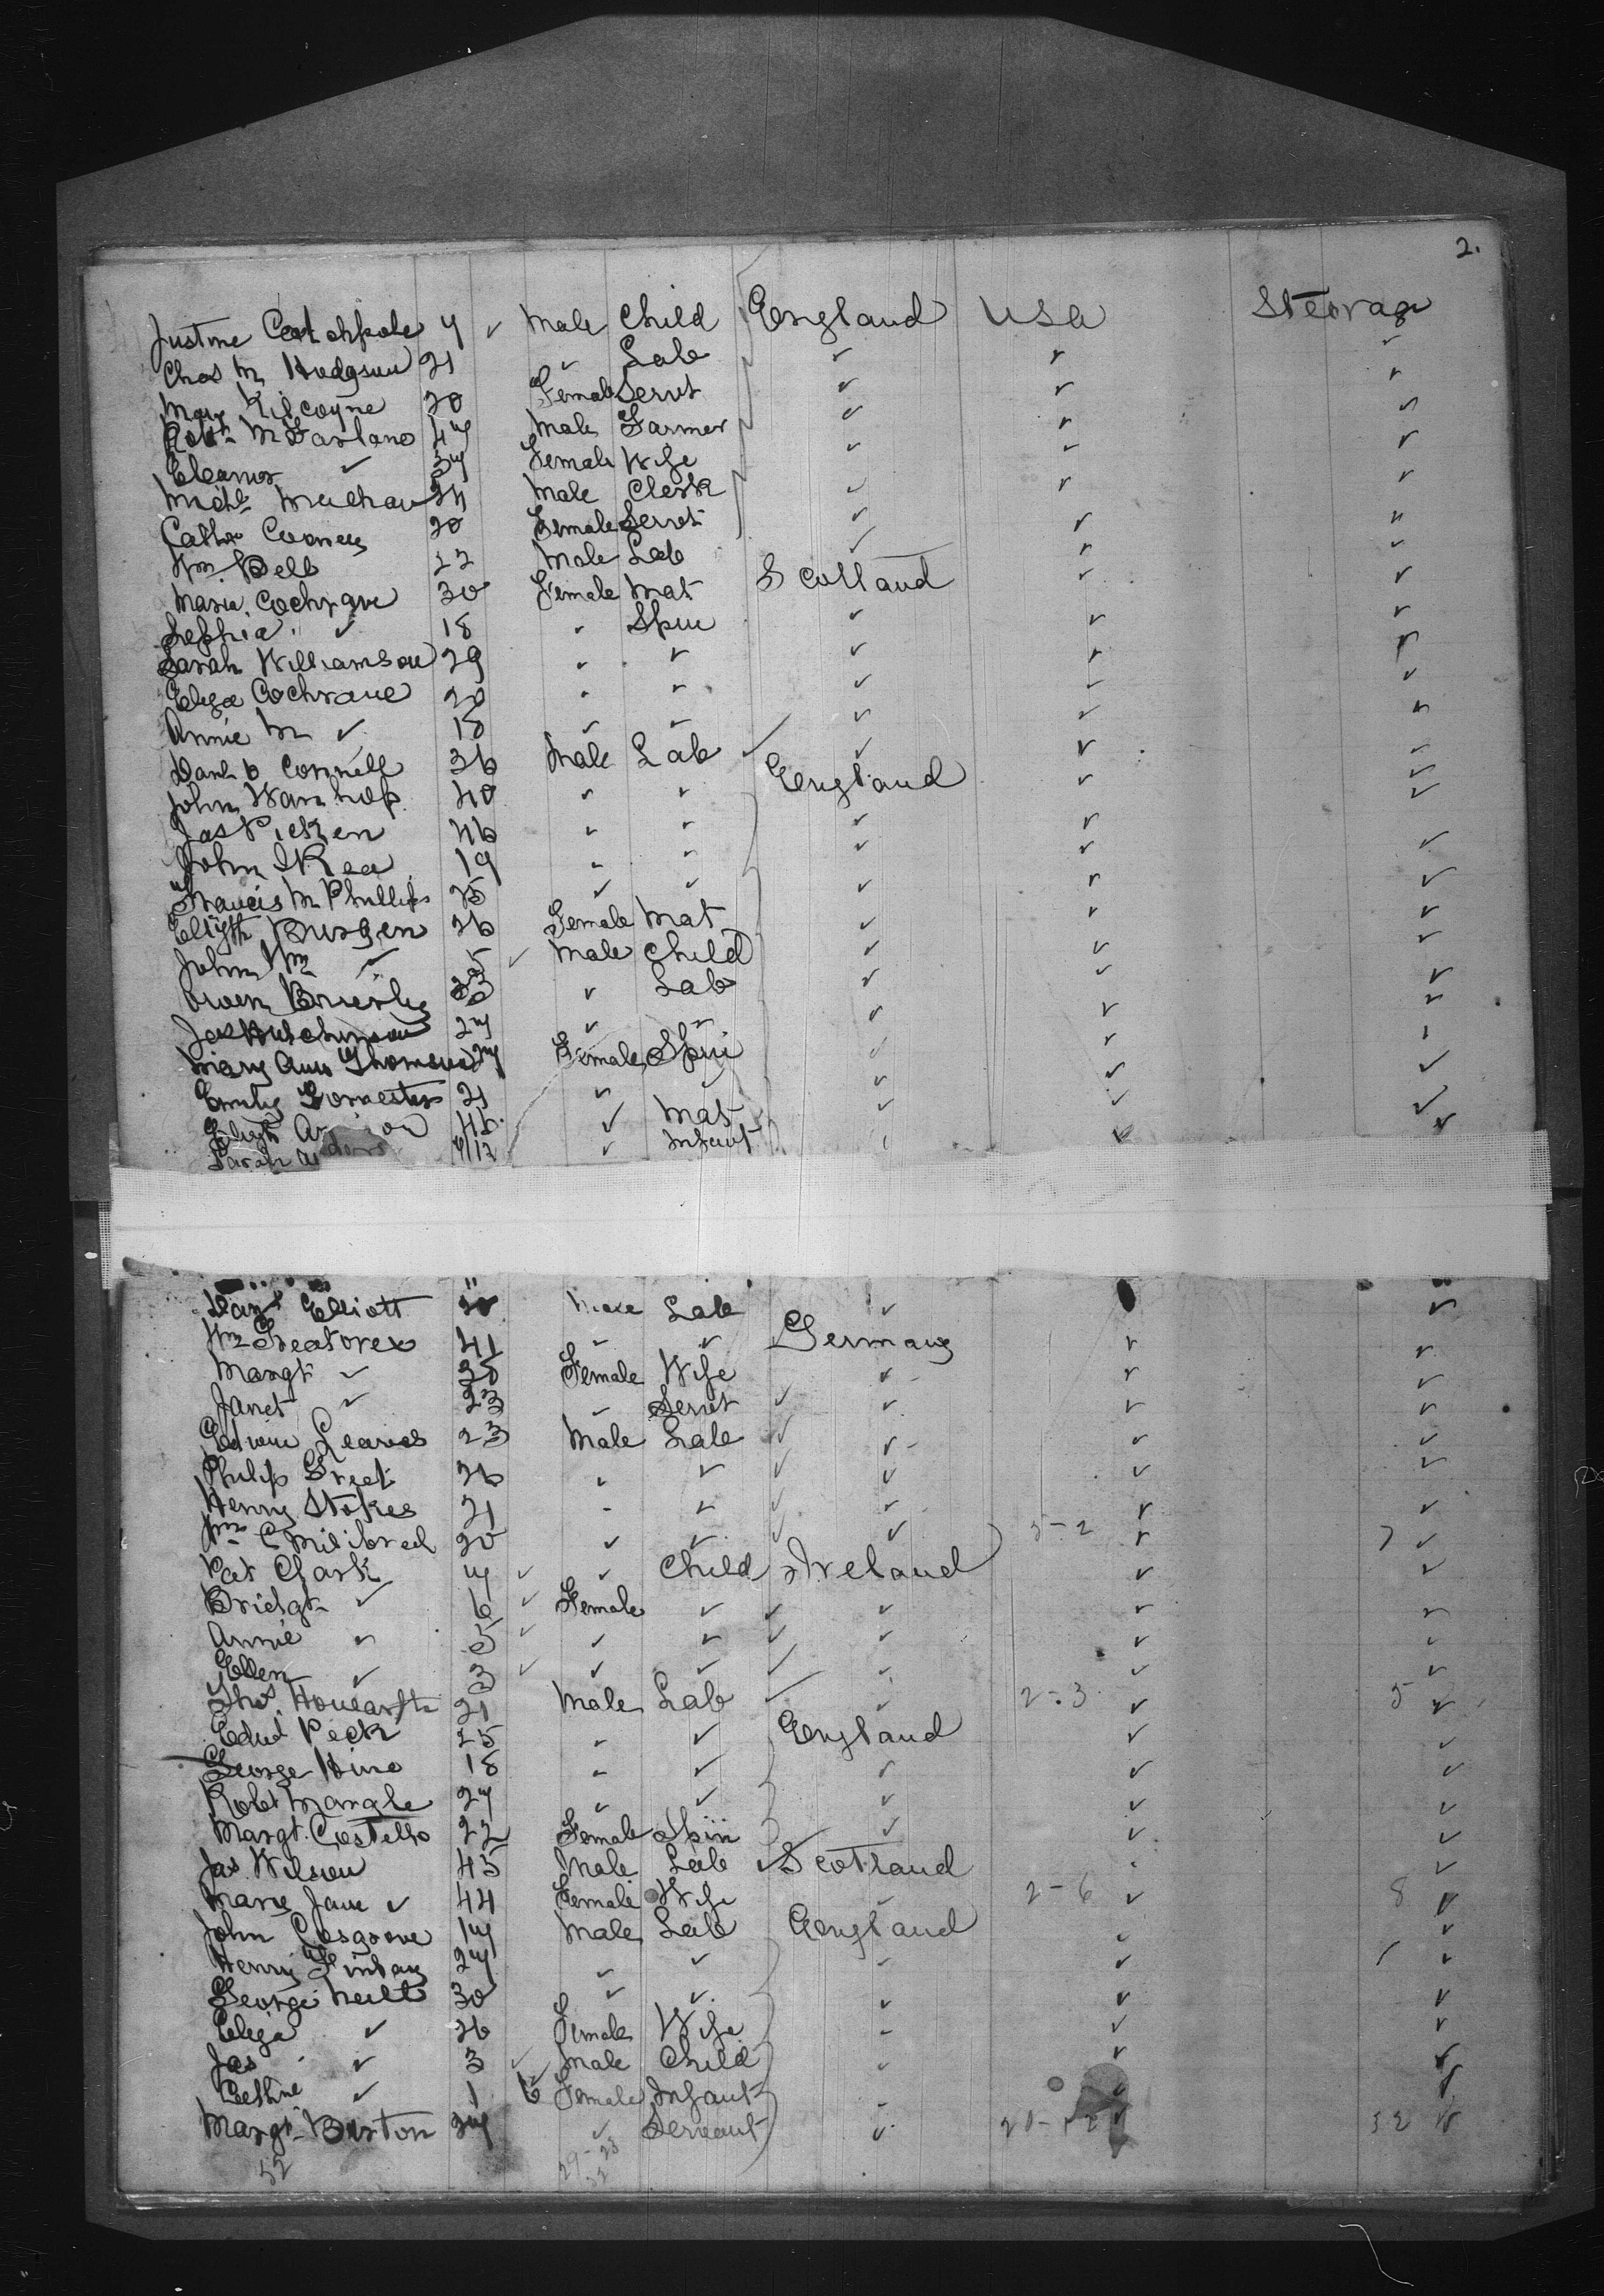 2.
Justine Catchpole 7 ✓ Male Child England USA Steerage
Chas M Hodgson 21 ✓ Lab ✓ ✓ ✓
Mary Kilcoyne 20 Female Servt ✓ ✓ ✓
Robt McFarlane 47 Male Farmer ✓ ✓ ✓
Eleanor ✓ 37 Female Wife ✓ ✓ ✓
Michl 24 Male Clerk ✓ ✓ ✓
Cathe Cooney 20 Female Servt ✓ ✓ "
Wm Bell 22 Male Lab ✓ ✓ ✓
Maria Cochrane 30 Female Mat Scotland ✓ ✓
Sophia ✓ 18 " Spin ✓ ✓ ✓
Sarah Williamson 29 " ✓ ✓ ✓ ✓
Eliza Cochrane 20 " ✓ ✓ ✓ ✓
Annie M ✓ 18 ✓ ✓ ✓ ✓ ✓
Danl O Connell 36 Male Lab ✓ ✓ ✓ ✓
John 40 ✓ ✓ England ✓ ✓
Jas Picken 46 ✓ ✓ ✓ ✓ ✓
John Rea 19 ✓ ✓ ✓ ✓ ✓
Francis M Phillips 25 ✓ ✓ ✓ ✓ ✓
Elizth 26 Female Mat ✓ ✓ ✓
John Wm ✓ 5 ✓ Male Child ✓ ✓ ✓
Owen Brierly 33 ✓ Lab ✓ ✓ ✓
Jas Hutchinson 27 ✓ ✓ ✓ ✓ ✓
Mary Ann 27 Female Spin ✓ ✓ ✓
Emily Forrester 21 ✓ ✓ ✓ ✓ ✓
Elizth ✓ Mat ✓ ✓ ✓
Sarah ✓ Infant ✓ ✓ ✓
Elliott Male Lab ✓ ✓
Wm Greatorex 41 ✓ ✓ Germany ✓ ✓
Margt ✓ 38 Female Wife ✓ ✓ ✓
Janet ✓ 23 ✓ Servt ✓ ✓ ✓ ✓
Edwin Leaves 23 Male Lab ✓ ✓ ✓ ✓
Philip Greet 26 ✓ ✓ ✓ ✓ ✓ ✓
Henry Stokes 21 " ✓ ✓ ✓ ✓ ✓
Wm C 20 ✓ ✓ ✓ ✓ 5-2 ✓ 7 ✓
Pat Clark 7 ✓ ✓ Child Ireland ✓ ✓
Bridgt ✓ 6 ✓ Female ✓ ✓ ✓ ✓ ✓
Annie ✓ 5 ✓ ✓ ✓ ✓ ✓ ✓ ✓
Ellen ✓ 3 ✓ ✓ ✓ ✓ ✓ ✓ ✓
Thos Howarth 21 Male Lab ✓ ✓ 2-3 ✓ 5 ✓
Edwd Peck 25 ✓ ✓ England ✓ ✓
George Hine 18 ✓ ✓ ✓ ✓ ✓
Robt Mangle 27 ✓ ✓ ✓ ✓ ✓
Margt Costello 22 Female Spin ✓ ✓ ✓
Jas Wilson 45 Male Lab ✓ Scotland ✓ ✓
Marie Jane ✓ 44 Female Wife ✓ 2-6 ✓ 8 ✓
John Cosgrove 17 Male Lab England ✓ ✓
Henry Finlay 27 ✓ ✓ ✓ ✓ ✓
George 30 ✓ ✓ ✓ ✓ ✓
Eliza ✓ 26 Female Wife ✓ ✓ ✓
Jas ✓ 3 ✓ Male Child ✓ ✓ ✓
✓ 1 Female Infant ✓ ✓ ✓
Margt Burton 27 ✓ Servant ✓ ✓ 52 ✓
52 29-23
52